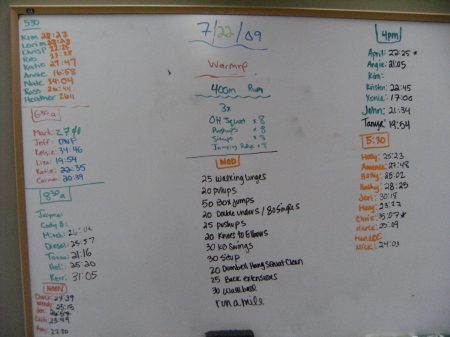 530
Kim 28:23
Chris P
Rob
Katie 27:47
Annie 16:58
Nate 34:04
Ross
Heather
630a
Mark:
Jeff: DNF
Kelsie: 34:46
Lisa: 19:54
Katie: 22:35
Corinn: 20:39
830a
Jayme:
Cody B:
Mina:
Diesel: 25:57
Tessa: 21:16
Hal: 25:20
Kevr: 31:05
NOON
Chuck: 24:29
7/22/09
Warmup
400m Run
3x
OH Squat x 8
Pushups x 8
Situps x 8
Jumping Pullups x 8
WOD
25 Walking lunges
20 pullups
50 Box jumps
20 Double unders / 80 Singles
25 pushups
20 Knees to Elbows
30 KB Swings
30 Situp
20 Dumbell Hang squat Clean
25 Back extensions
30 Wallball
run a mile
4pm
April: 22:25 *
Angie: 21:05
Kim:
Kristen: 22:45
Xonia: 17:00
John: 21:34
Tanya: 19:54
5:30
Holly: 25:23
Amanda: 27:48
Holly: 25:02
Kathy: 28:25
Jeri: 30:18
Haag: 23:27
Chris: 35:07*
Karle: 25:09
Nick: 24:03